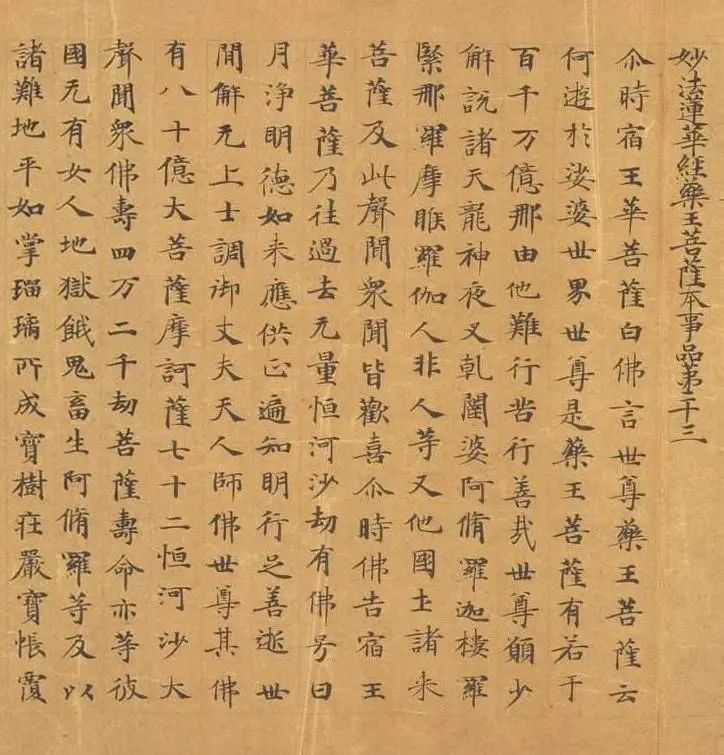 妙法蓮華経藥王菩薩本事品苐二十三
尒時宿王華菩薩白佛言世尊藥王菩薩云
何遊於娑婆世界世尊是藥王菩薩有若干
百千万億那由他難行苦行善㢤世尊願少
解說諸天龍神夜叉乹闥婆阿脩羅迦樓羅
緊那羅摩睺羅伽人非人等又他國土諸来
菩薩及此聲聞衆聞皆歡喜尒時佛告宿王
華菩薩乃往過去无量恒河沙劫有佛号曰
月浄明德如来應供正遍知明行足善逝世
間解无上士調御丈夫天人師佛世尊其佛
有八十億大菩薩摩訶薩七十二恒河沙大
聲聞衆佛壽四万二千劫菩薩壽命亦等彼
國无有女人地獄餓鬼畜生阿脩羅等及以
諸難地平如掌瑠璃所成寶樹莊嚴寶帳覆